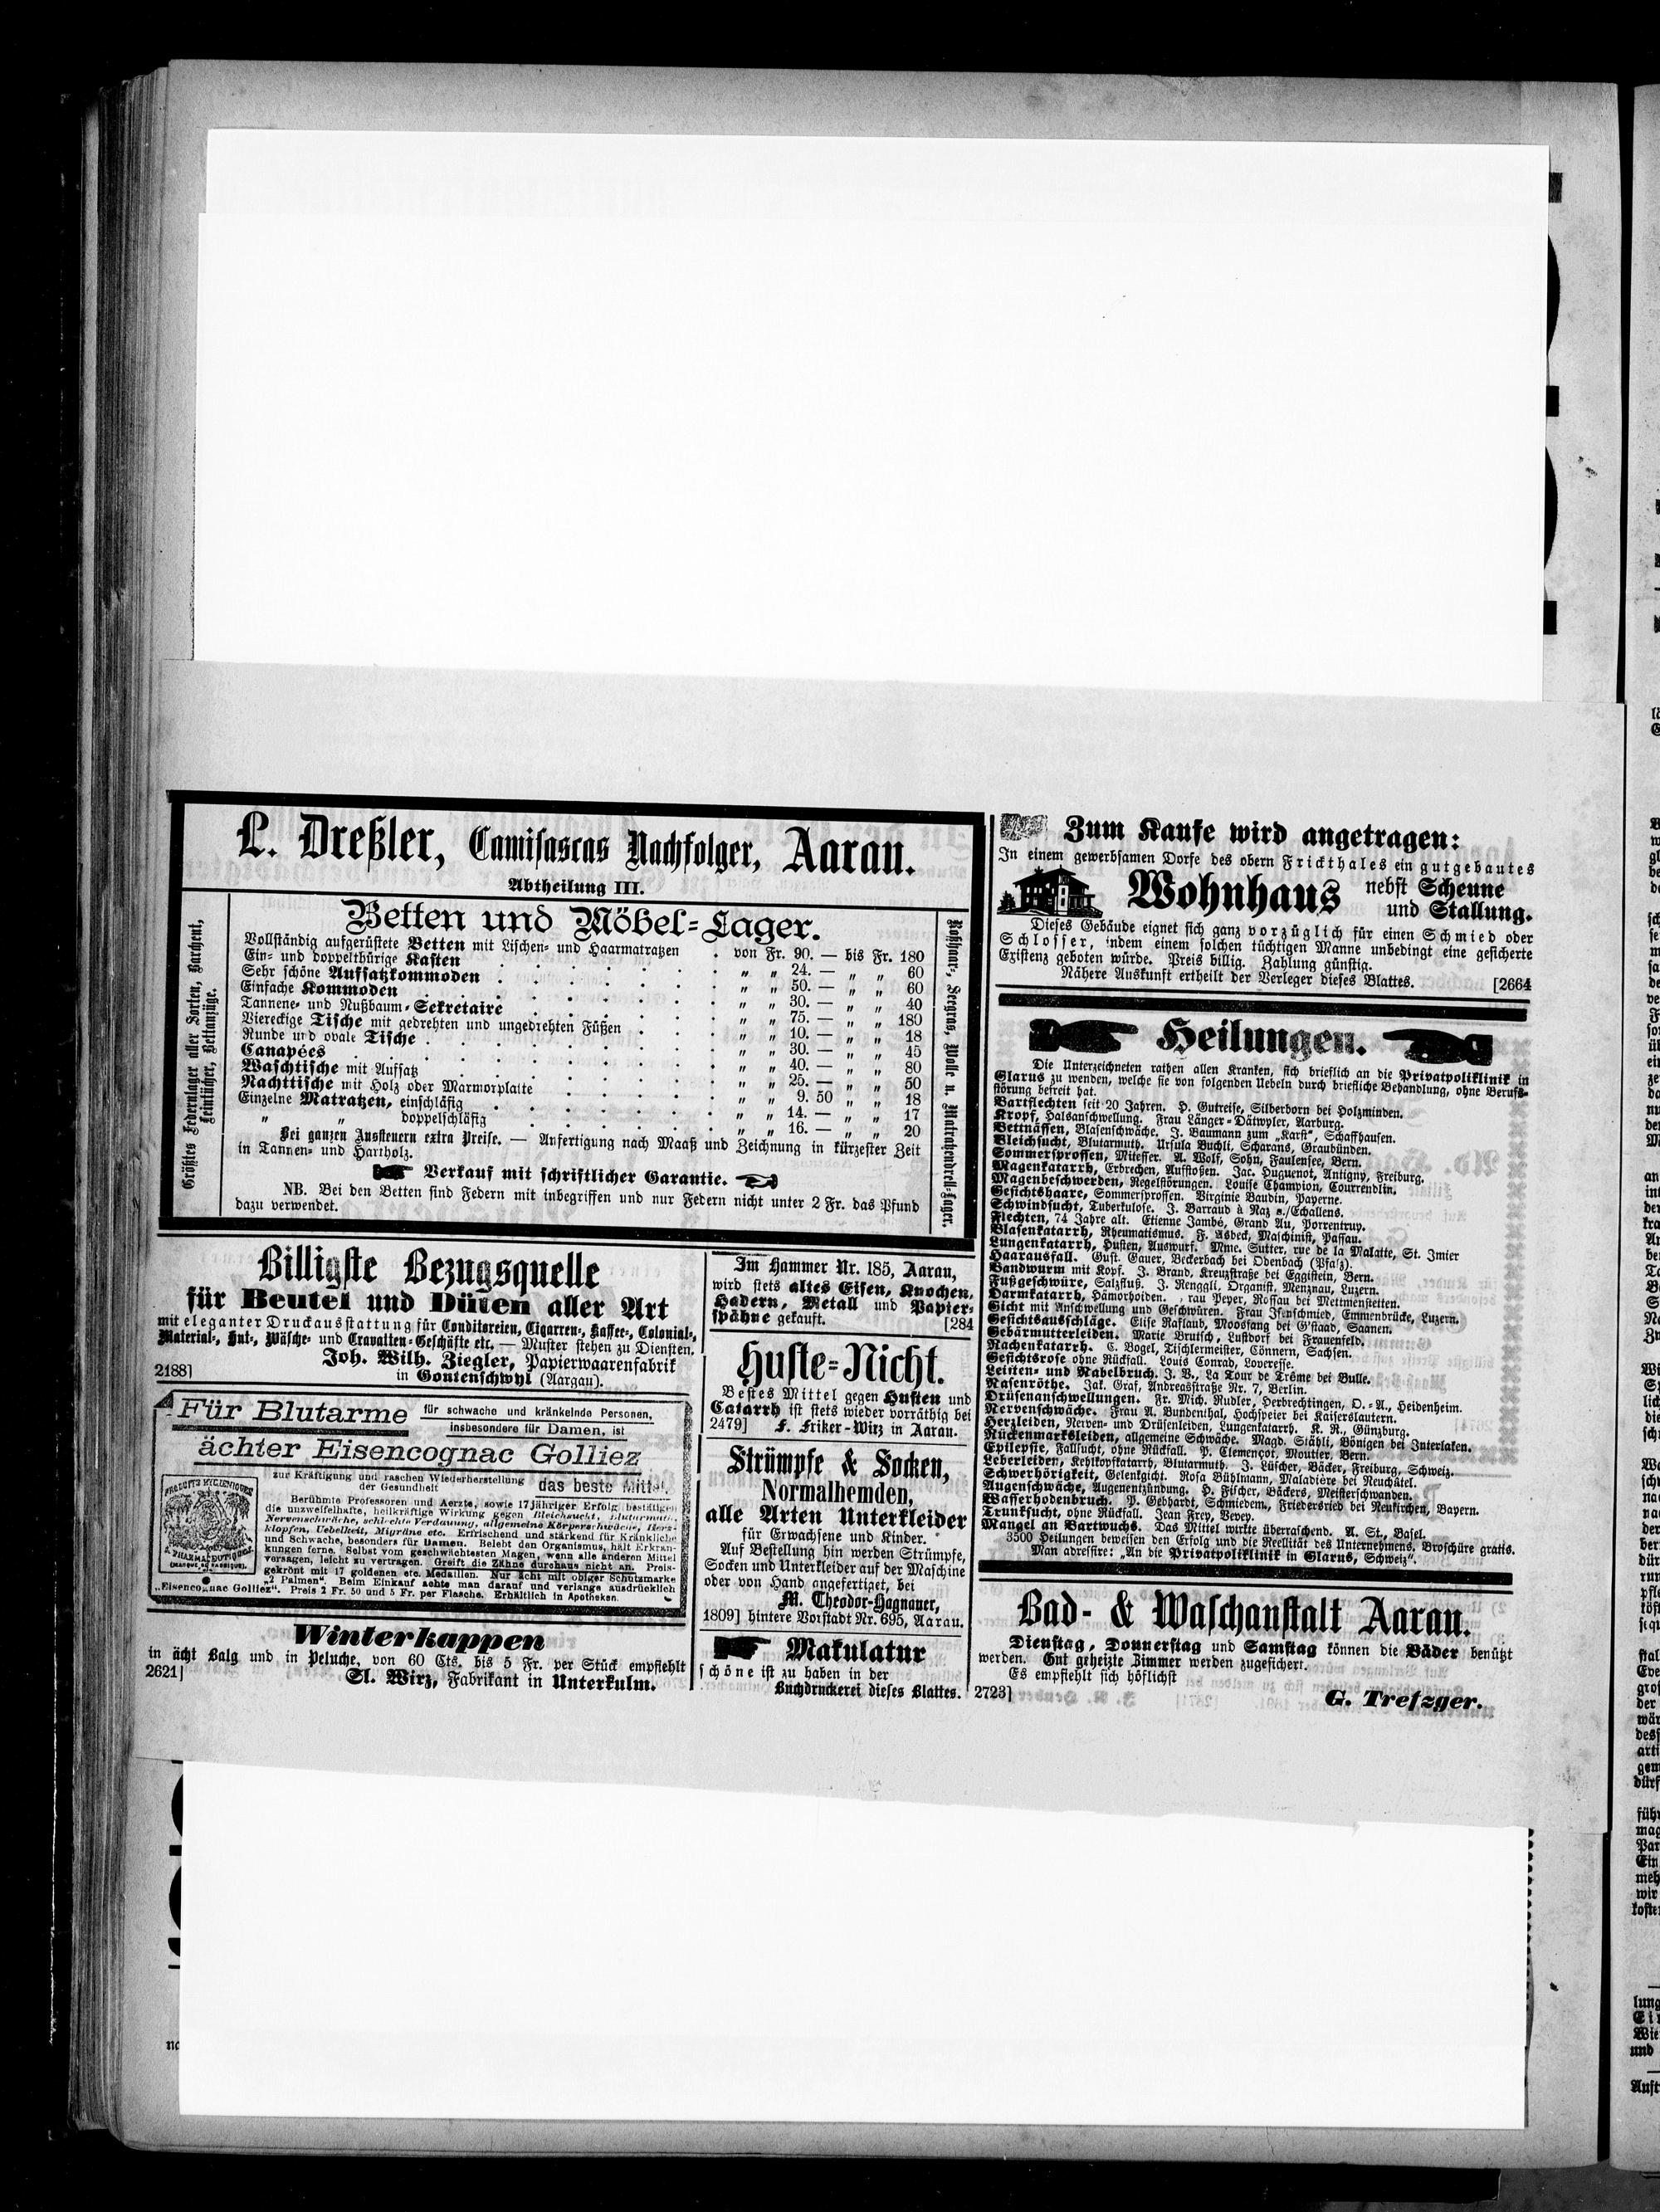 L. Dreßler, Camisascas Nachfolger, Aarau.
Abtheilung III.
Größtes Federnlager aller Sorten, Barchent,
Leintücher, Bettanzüge.
Betten und Möbel-Lager.
Vollständig aufgerüstete Betten mit Lischen- und Haarmatratzen . von Fr. 90. — bis Fr. 180
Ein- und doppelthürige Kasten . . . . . . . „ „ 24. — „ „ 60
Sehr schöne Aufsatzkommoden . . . . . . . „ „ 50. — „ „ 60
Einfache Kommoden . . . . . . . . „ „ 30. — „ „ 40
Tannene- und Nußbaum-Sekretaire . . . . . . „ „ 75. — „ „ 180
Viereckige Tische mit gedrehten und ungedrehten Füßen . . . . „ „ 10. — „ „ 18
Runde und ovale Tische . . . . . . . . „ „ 30. — „ „ 45
Canapées . . . . . . . . . „ „ 40. — „ „ 80
Waschtische mit Aufsatz . . . . . . . . „ „ 25. — „ „ 50
Nachttische mit Holz oder Marmorplatte . . . . . . „ „ 9. 50 „ „ 18
Einzelne Matratzen, einschläfig . . . . . . . „ „ 14. — „ „ 17
„ „ doppelschläfig . . . . . . „ „ 16. — „ „ 20
Bei ganzen Aussteuern extra Preise. — Anfertigung nach Maaß und Zeichnung in kürzester Zeit
in Tannen- und Hartholz.
Verkauf mit schriftlicher Garantie.
NB. Bei den Betten sind Federn mit inbegriffen und nur Federn nicht unter 2 Fr. das Pfund
dazu verwendet.
Roßhaar-, Seegras, Wolle u. Matratzendrell-Lager.
Billigste Bezugsquelle
für Beutel und Düten aller Art
mit eleganter Druckausstattung für Conditoreien, Cigarren-, Kaffee-, Colonial-,
Material-, Hut-, Wäsche- und Cravatten-Geschäfte etc. — Muster stehen zu Diensten.
Joh. Wilh. Ziegler, Papierwaarenfabrik
2188] in Gontenschwyl (Aargau).
Für Blutarme für schwache und kränkelnde Personen,
insbesondere für Damen, ist
ächter Eisencognac Golliez
zur Kräftigung und raschen Wiederherstellung
der Gesundheit das beste Mittel.
PRODUITS HYGIENIQUES
& PHARMACEUTIQUES
MARQUE DE FABRIQUE.
Berühmte Professoren und Aerzte, sowie 17jähriger Erfolg bestätigen
die unzweifelhafte, heilkräftige Wirkung gegen Bleichsucht, Blutarmuth,
Nervenschwäche, schlechte Verdauung, allgemeine Körperschwäche, Herz-
klopfen, Uebelkeit, Migräne etc. Erfrischend und stärkend für Kränkliche
und Schwache, besonders für Damen. Belebt den Organismus, hält Erkran-
kungen ferne. Selbst vom geschwächtesten Magen, wenn alle anderen Mittel
versagen, leicht zu vertragen. Greift die Zähne durchaus nicht an. Preis-
gekrönt mit 17 goldenen etc. Medaillen. Nur ächt mit obiger Schutzmarke
„2 Palmen“. Beim Einkauf achte man darauf und verlange ausdrücklich
„Eisencognac Golliez“. Preis 2 Fr. 50 und 5 Fr. per Flasche. Erhältlich in Apotheken.
Winterkappen
in ächt Balg und in Peluche, von 60 Cts. bis 5 Fr. per Stück empfiehlt
2621] Sl. Wirz, Fabrikant in Unterkulm.
Im Hammer Nr. 185, Aarau,
wird stets altes Eisen, Knochen,
Hadern, Metall und Papier-
spähne gekauft. [284
Huste-Nicht.
Bestes Mittel gegen Husten und
Catarrh ist stets wieder vorräthig bei
2479] F. Friker-Wirz in Aarau.
Strümpfe & Socken,
Normalhemden,
alle Arten Unterkleider
für Erwachsene und Kinder.
Auf Bestellung hin werden Strümpfe,
Socken und Unterkleider auf der Maschine
oder von Hand angefertigt, bei
M. Theodor-Hagnauer,
1809] hintere Vorstadt Nr. 695, Aarau.
Makulatur
schöne ist zu haben in der
Buchdruckerei dieses Blattes.
Zum Kaufe wird angetragen:
In einem gewerbsamen Dorfe des obern Frickthales ein gutgebautes
Wohnhaus nebst Scheune
und Stallung.
Dieses Gebäude eignet sich ganz vorzüglich für einen Schmied oder
Schlosser, indem einem solchen tüchtigen Manne unbedingt eine gesicherte
Existenz geboten würde. Preis billig. Zahlung günstig.
Nähere Auskunft ertheilt der Verleger dieses Blattes. [2664
Heilungen.
Die Unterzeichneten rathen allen Kranken, sich brieflich an die Privatpoliklinik in
Glarus zu wenden, welche sie von folgenden Uebeln durch briefliche Behandlung, ohne Berufs-
störung befreit hat.
Bartflechten seit 20 Jahren. H. Gutreise, Silberborn bei Holzminden.
Kropf, Halsanschwellung. Frau Länger-Dätwyler, Aarburg.
Bettnässen, Blasenschwäche. J. Baumann zum „Karst“, Schaffhausen.
Bleichsucht, Blutarmuth. Ursula Buchli, Scharans, Graubünden.
Sommersprossen, Mitesser. A. Wolf, Sohn, Faulensee, Bern.
Magenkatarrh, Erbrechen, Aufstoßen. Jac. Huguenot, Antigny, Freiburg.
Magenbeschwerden, Regelstörungen. Louise Champion, Courrendlin.
Gesichtshaare, Sommersprossen. Virginie Baudin, Payerne.
Schwindsucht, Tuberkulose. J. Barraud à Naz s./Echallens.
Flechten, 74 Jahre alt. Etienne Jambé, Grand Au, Porrentruy.
Blasenkatarrh, Rheumatismus. F. Asbeck, Maschinist, Passau.
Lungenkatarrh, Husten, Auswurf. Mme. Sutter, rue de la Malatte, St. Imier
Haarausfall. Gust. Gauer, Beckerbach bei Odenbach (Pfalz).
Bandwurm mit Kopf. J. Brand, Kreuzstraße bei Eggistein, Bern.
Fußgeschwüre, Salzfluß. J. Renggli, Organist, Menznau, Luzern.
Darmkatarrh, Hämorhoiden. , rau Peyer, Rossau bei Mettmenstetten.
Gicht mit Anschwellung und Geschwüren. Frau Isenschmied, Emmenbrücke, Luzern.
Gesichtsausschläge. Elise Raflaub, Moosfang bei G'staad, Saanen.
Gebärmutterleiden. Marie Brutsch, Lustdorf bei Frauenfeld.
Rachenkatarrh. C. Vogel, Tischlermeister, Cönnern, Sachsen.
Gesichtsrose ohne Rückfall. Louis Conrad, Loveresse.
Leisten- und Nabelbruch. J. B., La Tour de Trême bei Bulle.
Nasenröthe. Jak. Graf, Andreasstraße Nr. 7, Berlin.
Drüsenanschwellungen. Fr. Mich. Rudler, Herbrechtingen, O.-A., Heidenheim.
Nervenschwäche. Frau A. Bundenthal, Hochspeier bei Kaiserslautern.
Herzleiden, Nerven- und Drüsenleiden, Lungenkatarrh. K. R., Günzburg.
Rückenmarksleiden, allgemeine Schwäche. Magd. Stähli, Bönigen bei Interlaken.
Epilepsie, Fallsucht, ohne Rückfall. P. Clemençot, Moutier, Bern.
Leberleiden, Kehlkopfkatarrh, Blutarmuth. J. Lüscher, Bäcker, Freiburg, Schweiz.
Schwerhörigkeit, Gelenkgicht. Rosa Bühlmann, Maladière bei Neuchâtel.
Augenschwäche, Augenentzündung. H. Fischer, Bäckers, Meisterschwanden.
Wasserhodenbruch. P. Gebhardt, Schmiedem., Friedersried bei Neukirchen, Bayern.
Trunksucht, ohne Rückfall. Jean Frey, Vevey.
Mangel an Bartwuchs. Das Mittel wirkte überraschend. A. St., Basel.
3500 Heilungen beweisen den Erfolg und die Reellität des Unternehmens. Broschüre gratis.
Man adressire: „An die Privatpoliklinik in Glarus, Schweiz“.
Bad- & Waschanstalt Aarau.
Dienstag, Donnerstag und Samstag können die Bäder benützt
werden. Gut geheizte Zimmer werden zugesichert.
Es empfiehlt sich höflichst
2723] G. Trefzger.